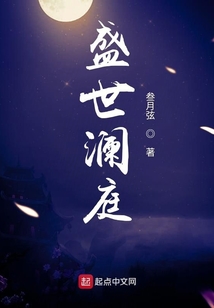 盛世澜庭
叁月弦 ◎ 著
起点中文网